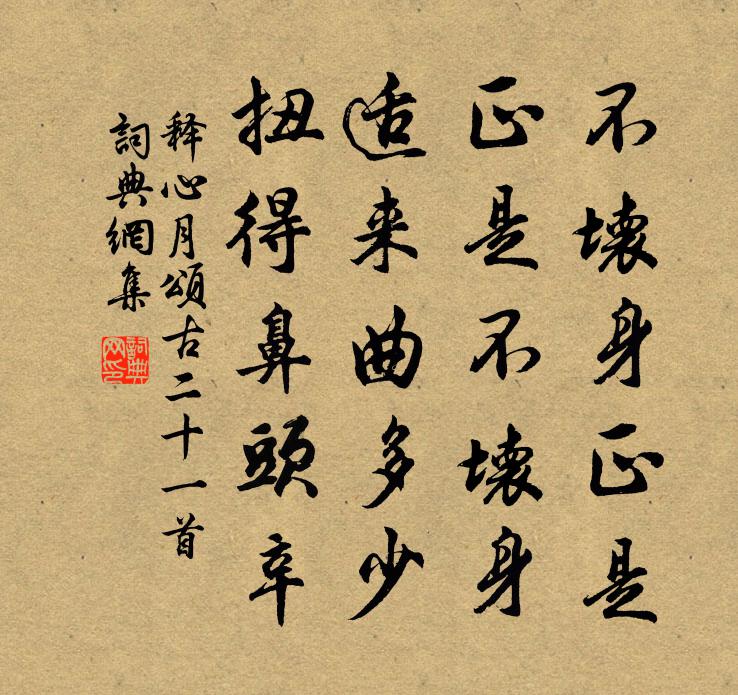 不壊身正是
正是不壊身
适来曲多少
扭得鼻頭辛
释心月頌古二十一首
詞典網集
詞典网印